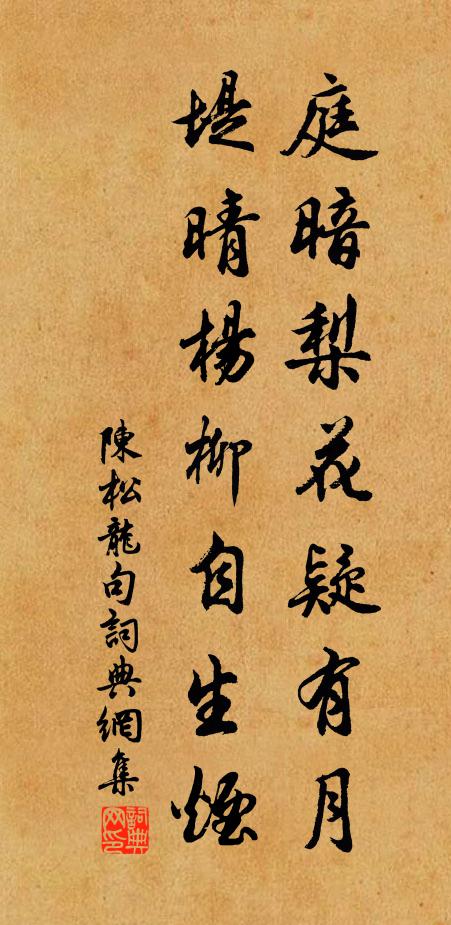 庭暗梨花疑有月
堤晴楊柳自生煙
陳松龍句詞典網集
詞典网印